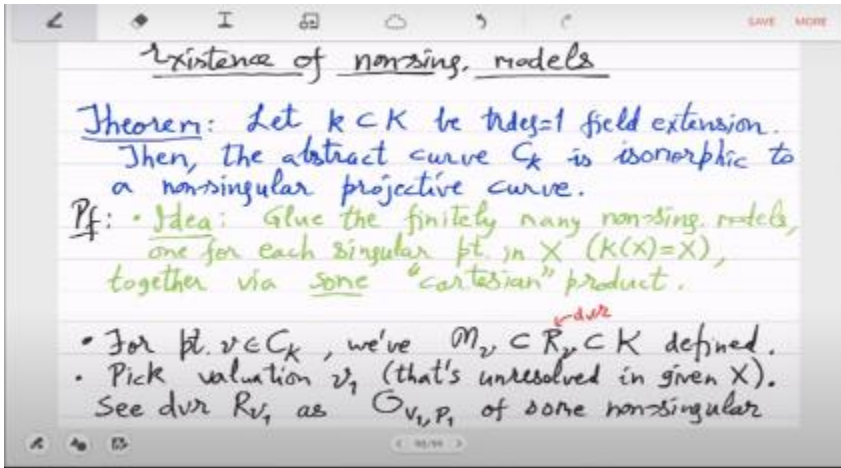 SAVE MORE
Existence of non-sing. models
Theorem: Let k ⊂ K be trdeg=1 field extension.
Then, the abstract curve C_K is isomorphic to
a non-singular projective curve.
Pf: • Idea: Glue the finitely many non-sing. models,
one for each singular pt. in X (K(X)=X),
together via some "cartesian" product.
dvr
• For pt. v ∈ C_K, we've m_v ⊂ R_v ⊂ K defined.
• Pick valuation v_1 (that's unresolved in given X).
See dvr R_{v_1} as O_{V_1,P_1} of some non-singular